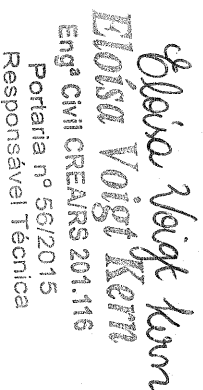 Eloisa Voigt Kern
Eloísa Voigt Kern
Engª Civil CREARS 201.116
Portaria nº 56/2015
Responsável Técnica